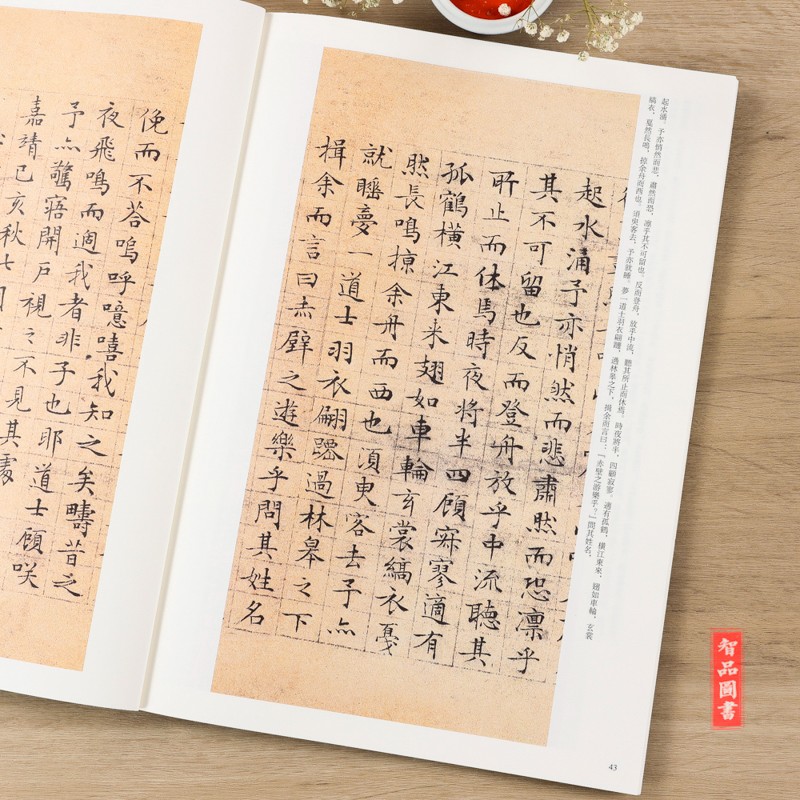 起水涌。予亦悄然而悲,肅然而恐,凛乎其不可留也。反而登舟,放乎中流,聽其所止而休焉。時夜將半,四顧寂寥。適有孤鶴,橫江東來,翅如車輪,玄裳
縞衣,戛然長鳴,掠余舟而西也。須臾客去,予亦就睡。夢一道士羽衣翩躚,過林皋之下,揖余而言曰:『赤壁之游樂乎?』問其姓名,
起水涌予亦悄然而悲肅然而恐凛乎
其不可留也反而登舟放乎中流聽其
所止而休焉時夜將半四顧寂寥適有
孤鶴橫江東来翅如車輪玄裳縞衣戛
然長鳴掠余舟而西也須臾客去予亦
就睡夢一道士羽衣翩躚過林皋之下
揖余而言曰赤壁之遊樂乎問其姓名
43
俛而不荅嗚呼噫嘻我知之矣疇昔之
夜飛鳴而過我者非子也耶道士顧咲
予亦驚寤開戶視之不見其處
嘉靖己亥秋七月
智品圖書